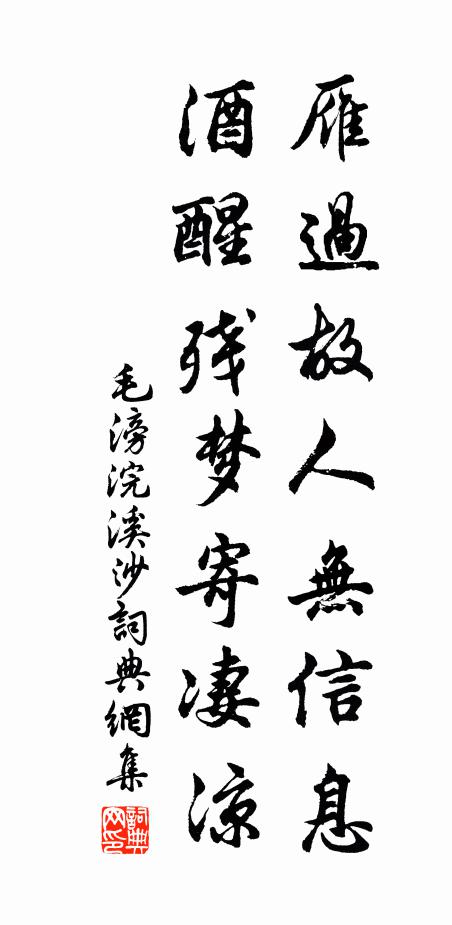 雁過故人無信息
酒醒残梦寄凄涼
毛滂浣溪沙詞典網集
詞典网印